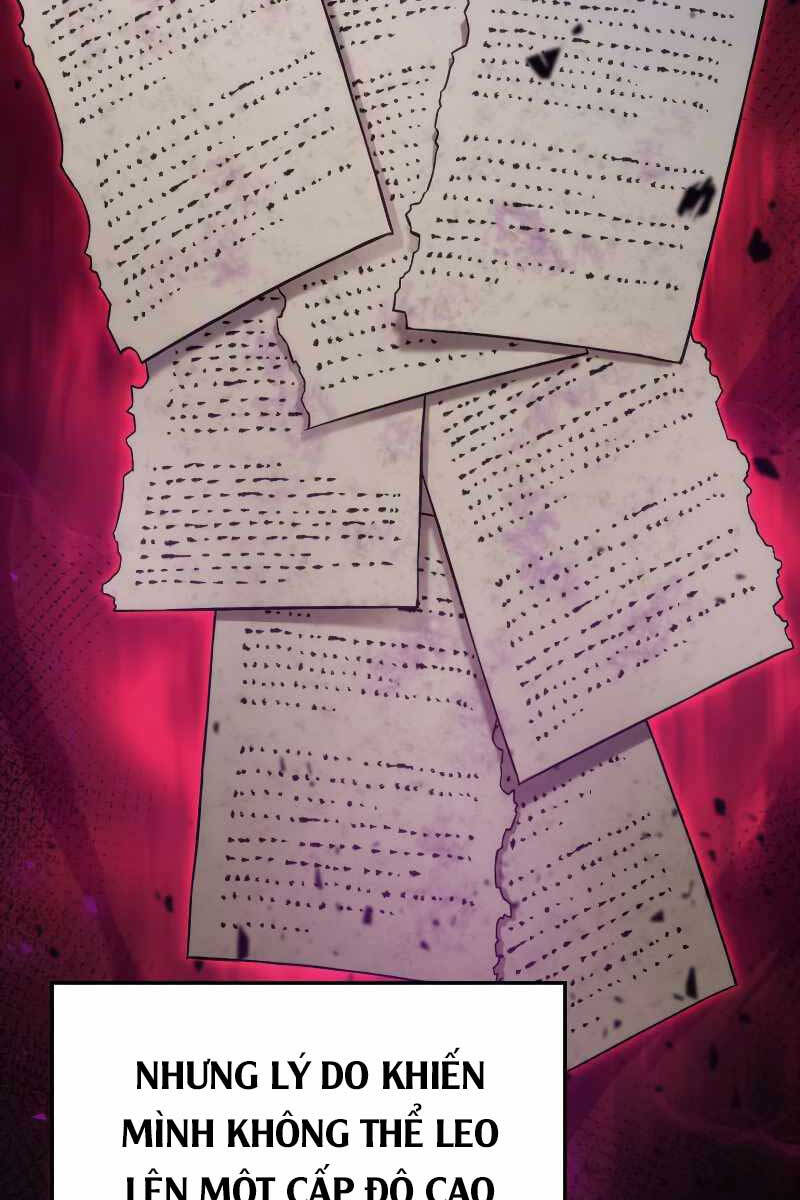 NHƯNG LÝ DO KHIẾN
MÌNH KHÔNG THỂ LEO
LÊN MỘT CẤP ĐỘ CAO